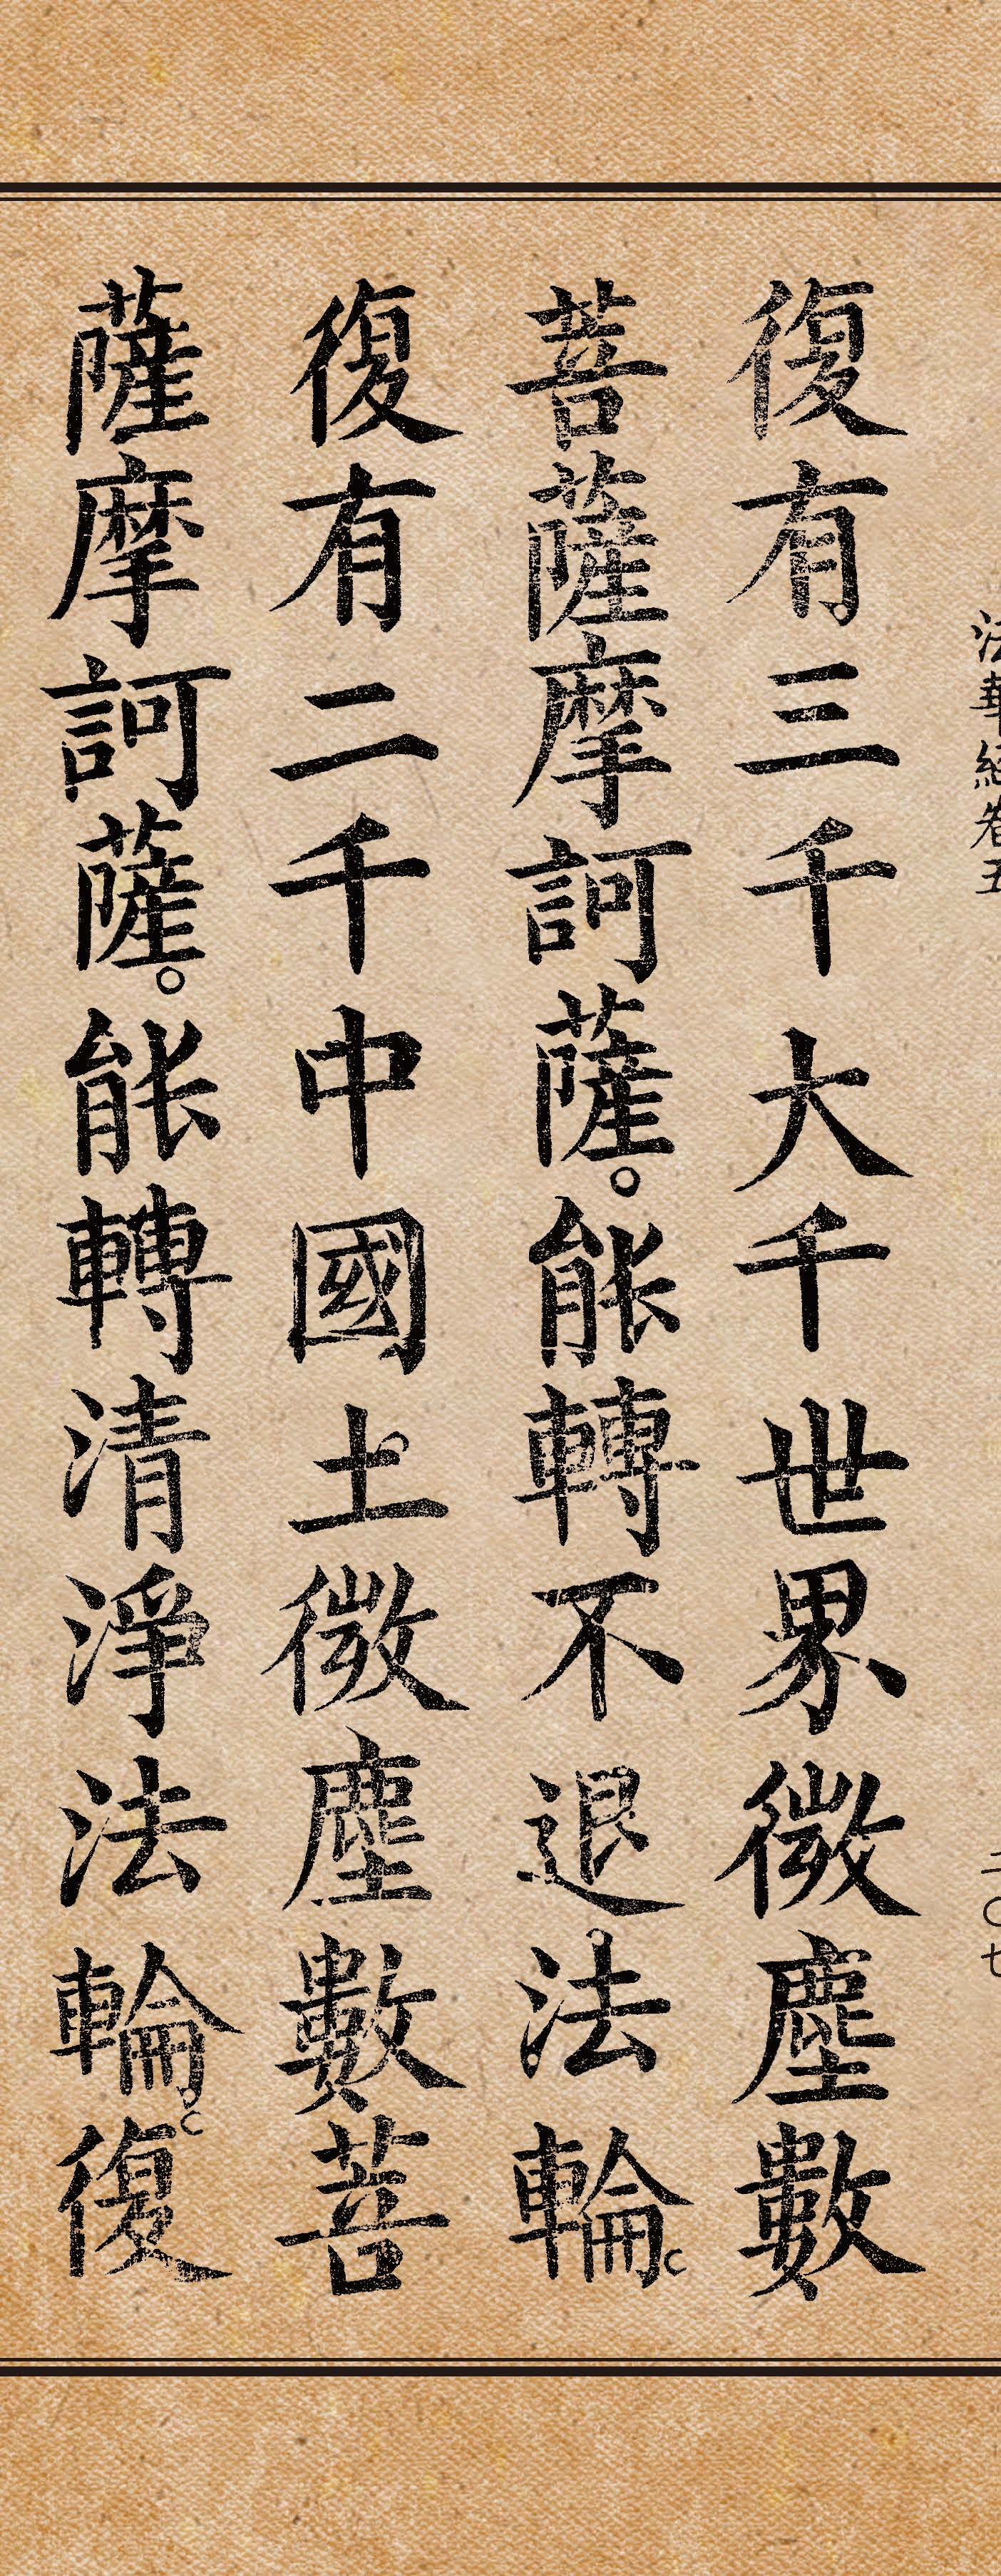 法華經卷五
二〇七
復有三千大千世界微塵數
菩薩摩訶薩。能轉不退法輪。
復有二千中國土微塵數菩
薩摩訶薩。能轉清淨法輪。復